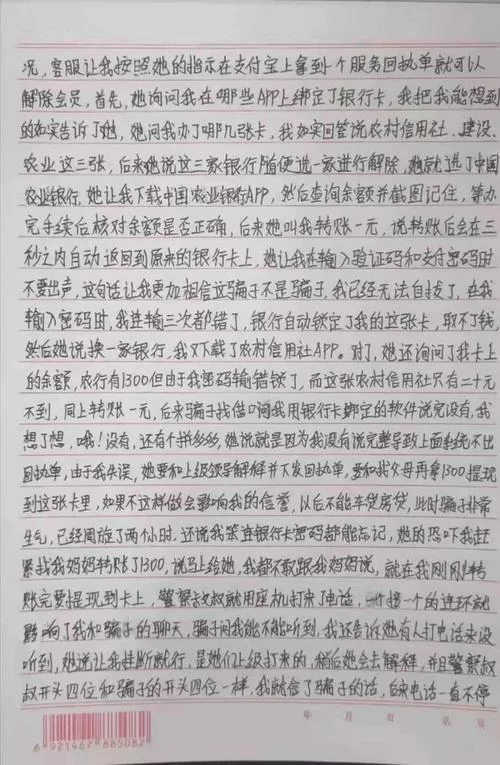 况，客服让我按照她的指示在支付宝上拿到一个服务回执单就可以
解除会员，首先，她询问我在哪些APP上绑定了银行卡，我把我能想到
的如实告诉了她，她问我办了哪几张卡，我如实回答说农村信用社、建设、
农业这三张，后来她说这三家银行随便选一家进行解除，她就选了中国
农业银行，她让我下载中国农业银行APP，然后查询余额并截图记住，等办
完手续后核对余额是否正确，后来她叫我转账一元，说转账后会在三
秒之内自动返回到原来的银行卡上，她让我在输入验证码和支付密码时
不要出声，这句话让我更加相信这骗子不是骗子，我已经无法自拔了，在我
输入密码时，我连输三次都错了，银行自动锁定了我的这张卡，取不了钱，
然后她说换一家银行，我又下载了农村信用社APP。对了，她还询问了我卡上
的余额，农行有1300但由于我密码输错锁了，而这张农村信用社只有二十元
不到，同上转账一元，后来骗子找借口问我用银行卡绑定的软件说完没有，我
想了想，哦！没有，还有个拼多多，她说就是因为我没有说完整导致上面系统不出
回执单，由于我失误，她要和上级领导解释并下发回执单，要和我父母再拿1300提现
到这张卡里，如果不这样做会影响我的信誉，以后不能车贷房贷，此时骗子非常
生气，已经周旋了两个小时，还说我笨连银行卡密码都能忘记，她的恐吓我赶
紧找我妈妈转账了1300，说马上给她，我都不敢跟我妈妈说，就在我刚刚转
账完要提现到卡上，警察叔叔就用座机打来了电话，一个的连环就
影响了我和骗子的聊天，骗子问我能不能听到，我还告诉她有人打电话来没
听到，她说让我挂断就行，是她们上级打来的，稍后她会去解释，并且警察叔
叔开头四位和骗子的开头四位一样，我就信了骗子的话，后来电话一直不停
年 月 日 第 页
6 921467 885082